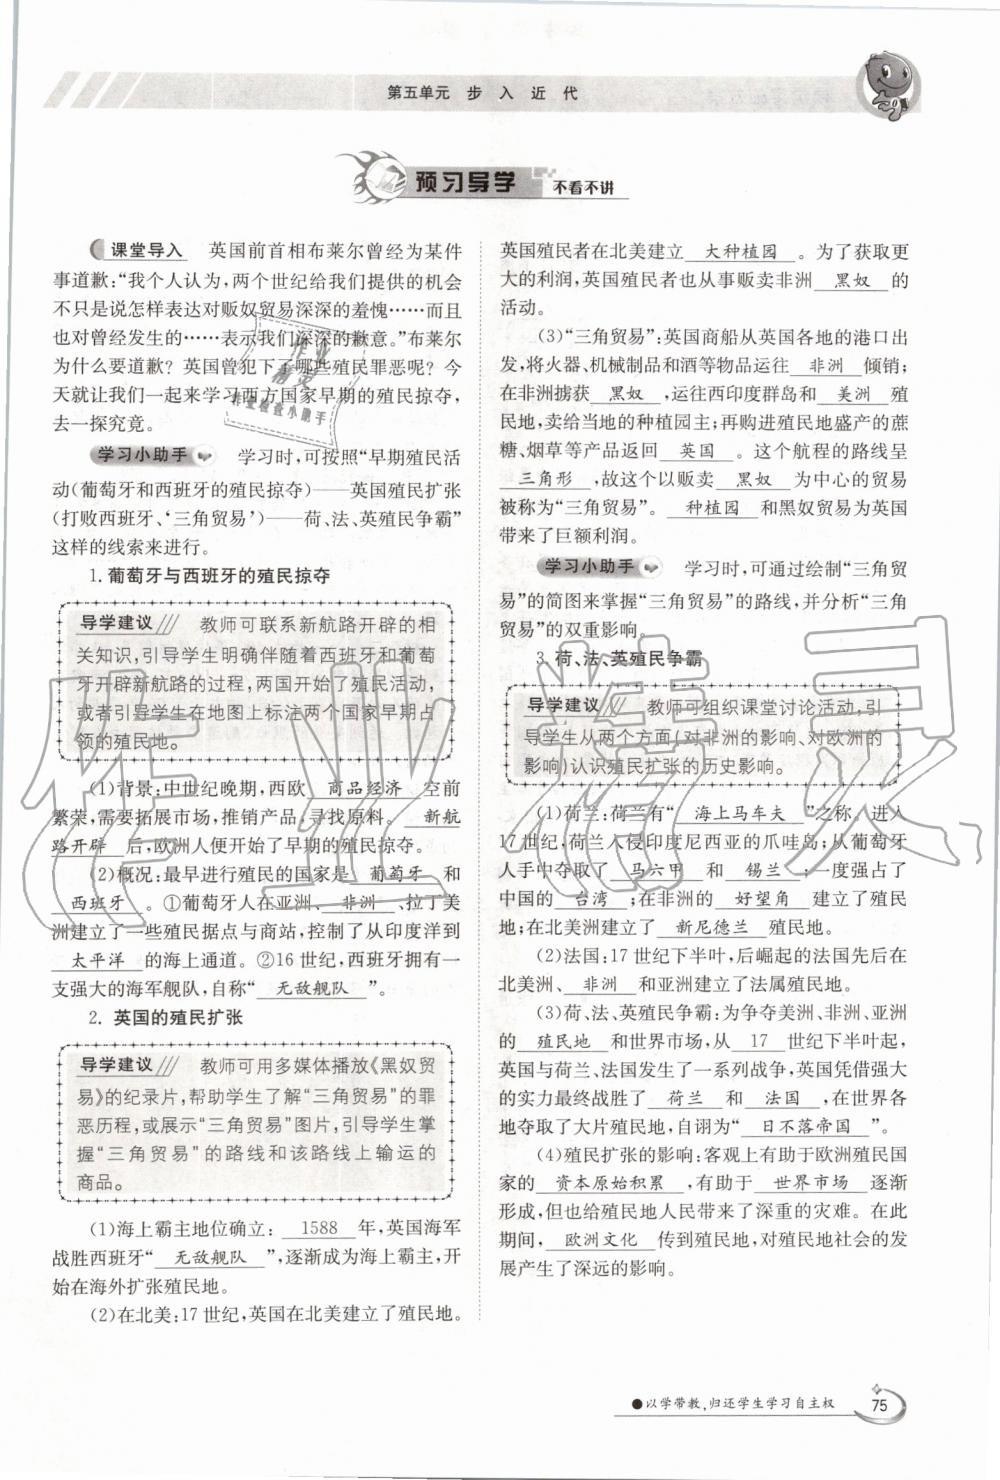 第五单元 步入近代
预习导学 不看不讲
课堂导入 英国前首相布莱尔曾经为某件
事道歉:“我个人认为,两个世纪给我们提供的机会
不只是说怎样表达对贩奴贸易深深的羞愧……而且
也对曾经发生的……表示我们深深的歉意。”布莱尔
为什么要道歉?英国曾犯下了哪些殖民罪恶呢?今
天就让我们一起来学习西方国家早期的殖民掠夺,
去一探究竟。
学习小助手 学习时,可按照“早期殖民活
动(葡萄牙和西班牙的殖民掠夺)——英国殖民扩张
(打败西班牙、‘三角贸易’)——荷、法、英殖民争霸”
这样的线索来进行。
1. 葡萄牙与西班牙的殖民掠夺
导学建议 教师可联系新航路开辟的相
关知识,引导学生明确伴随着西班牙和葡萄
牙开辟新航路的过程,两国开始了殖民活动,
或者引导学生在地图上标注两个国家早期占
领的殖民地。
(1)背景:中世纪晚期,西欧 商品经济 空前
繁荣,需要拓展市场,推销产品,寻找原料。 新航
路开辟 后,欧洲人便开始了早期的殖民掠夺。
(2)概况:最早进行殖民的国家是 葡萄牙 和
西班牙 。①葡萄牙人在亚洲、 非洲 、拉丁美
洲建立了一些殖民据点与商站,控制了从印度洋到
太平洋 的海上通道。②16 世纪,西班牙拥有一
支强大的海军舰队,自称“ 无敌舰队 ”。
2. 英国的殖民扩张
导学建议 教师可用多媒体播放《黑奴贸
易》的纪录片,帮助学生了解“三角贸易”的罪
恶历程,或展示“三角贸易”图片,引导学生掌
握“三角贸易”的路线和该路线上输运的
商品。
(1)海上霸主地位确立: 1588 年,英国海军
战胜西班牙“ 无敌舰队 ”,逐渐成为海上霸主,开
始在海外扩张殖民地。
(2)在北美:17 世纪,英国在北美建立了殖民地。
英国殖民者在北美建立 大种植园 。为了获取更
大的利润,英国殖民者也从事贩卖非洲 黑奴 的
活动。
(3)“三角贸易”:英国商船从英国各地的港口出
发,将火器、机械制品和酒等物品运往 非洲 倾销;
在非洲掳获 黑奴 ,运往西印度群岛和 美洲 殖
民地,卖给当地的种植园主;再购进殖民地盛产的蔗
糖、烟草等产品返回 英国 。这个航程的路线呈
三角形 ,故这个以贩卖 黑奴 为中心的贸易
被称为“三角贸易”。 种植园 和黑奴贸易为英国
带来了巨额利润。
学习小助手 学习时,可通过绘制“三角贸
易”的简图来掌握“三角贸易”的路线,并分析“三角
贸易”的双重影响。
3. 荷、法、英殖民争霸
导学建议 教师可组织课堂讨论活动,引
导学生从两个方面(对非洲的影响、对欧洲的
影响)认识殖民扩张的历史影响。
(1)荷兰:荷兰有“ 海上马车夫 ”之称。进入
17 世纪,荷兰入侵印度尼西亚的爪哇岛;从葡萄牙
人手中夺取了 马六甲 和 锡兰 ;一度强占了
中国的 台湾 ;在非洲的 好望角 建立了殖民
地;在北美洲建立了 新尼德兰 殖民地。
(2)法国:17 世纪下半叶,后崛起的法国先后在
北美洲、 非洲 和亚洲建立了法属殖民地。
(3)荷、法、英殖民争霸:为争夺美洲、非洲、亚洲
的 殖民地 和世界市场,从 17 世纪下半叶起,
英国与荷兰、法国发生了一系列战争,英国凭借强大
的实力最终战胜了 荷兰 和 法国 ,在世界各
地夺取了大片殖民地,自诩为“ 日不落帝国 ”。
(4)殖民扩张的影响:客观上有助于欧洲殖民国
家的 资本原始积累 ,有助于 世界市场 逐渐
形成,但也给殖民地人民带来了深重的灾难。在此
期间, 欧洲文化 传到殖民地,对殖民地社会的发
展产生了深远的影响。
作业精灵
作业
精灵
作业检查小助手
●以学带教,归还学生学习自主权 75